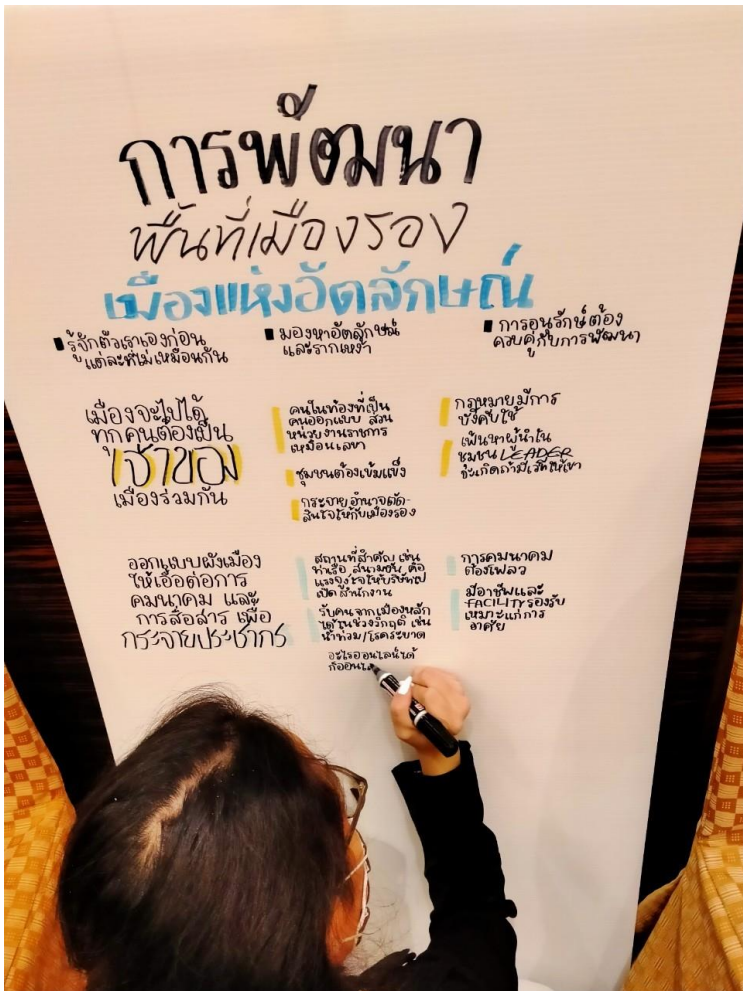 การพัฒนา
พื้นที่เมืองรอง
เมืองแห่งอัตลักษณ์
รู้จักตัวเราเองก่อน
แต่ละที่ไม่เหมือนกัน
มองหาอัตลักษณ์
และรากเหง้า
การอนุรักษ์ต้อง
ควบคู่กับการพัฒนา
เมืองจะไปได้
ทุกคนต้องเป็น
เจ้าของ
เมืองร่วมกัน
คนในท้องที่เป็น
คนออกแบบ ส่วน
หน่วยงานราชการ
เหมือนเลขา
ชุมชนต้องเข้มแข็ง
กระจายอำนาจตัด-
สินใจให้กับเมืองรอง
กฎหมายมีการ
บังคับใช้
เฟ้นหาผู้นำใน
ชุมชน LEADER
จะเกิดถ้ามีเวทีให้เขา
ออกแบบผังเมือง
ให้เอื้อต่อการ
คมนาคม และ
การสื่อสาร เพื่อ
กระจายประชากร
สถานที่สำคัญ เช่น
ท่าเรือ สนามบิน คือ
แรงจูงใจให้บริษัทไป
เปิดสำนักงาน
รับคนจากเมืองหลัก
ได้ในช่วงวิกฤติ เช่น
น้ำท่วม/โรคระบาด
อะไรออนไลน์ได้
ก็ออนไล
การคมนาคม
ต้องโฟลว
มีอาชีพและ
FACILITY รองรับ
เหมาะแก่การ
อาศัย